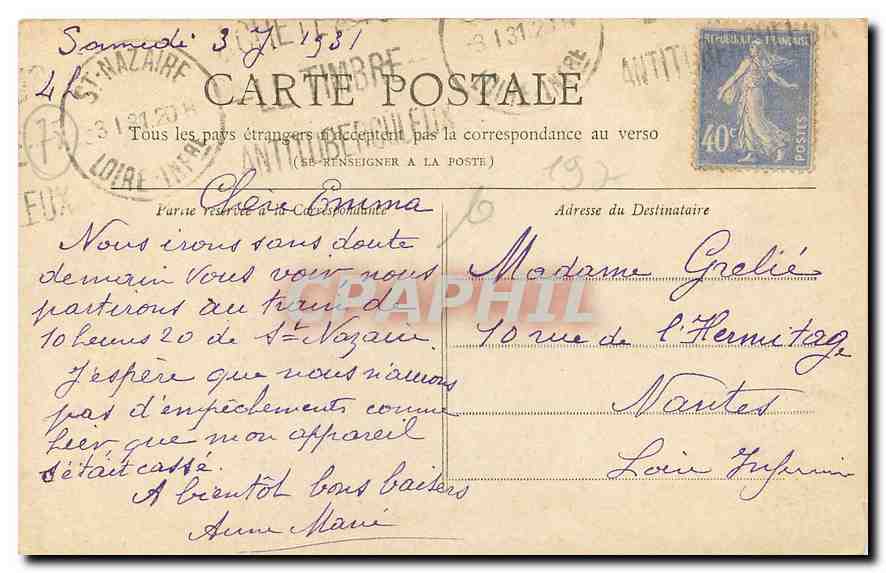 Samedi 3 J 1931
4 h
ST-NAZAIRE
3 1 31 20
LOIRE-INFRE
ACHETEZ
LE TIMBRE
ANTITUBERCULEUX
3 1 31 20
LOIRE-INFRE
ANTITUBERCULEUX
EUX
RÉPUBLIQUE FRANÇAISE
40c
POSTES
CARTE POSTALE
Tous les pays étrangers n'acceptent pas la correspondance au verso
(SE RENSEIGNER A LA POSTE)
197
6
Partie réservée à la Correspondance
Adresse du Destinataire
Chère Emma
Nous irons sans doute
demain vous voir nous
partirons au train de
10 heures 20 de St Nazaire
J'espère que nous n'aurons
pas d'empêchements comme
hier que mon appareil
s'était cassé.
A bientôt bons baisers
Anne Marie
Madame Grelié
10 rue de l'Hermitage
Nantes
Loire Inférieure
CPAPHIL